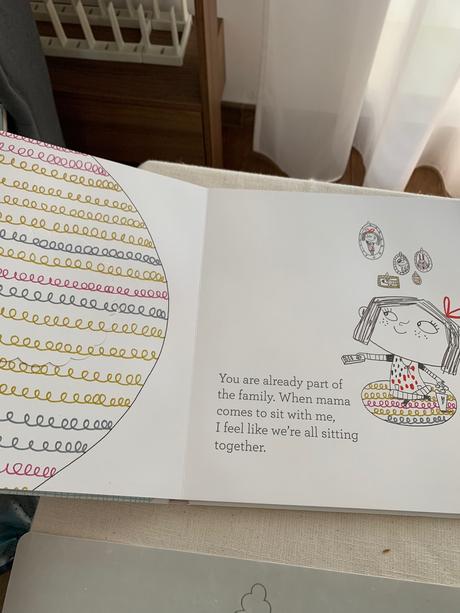 You are already part of
the family. When mama
comes to sit with me,
I feel like we're all sitting
together.